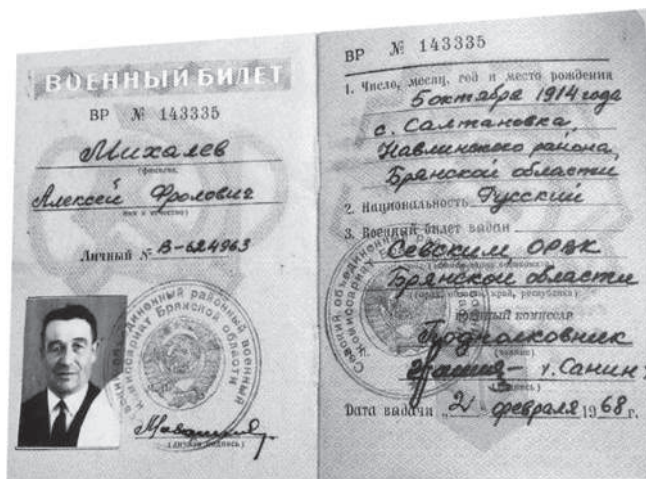 ВОЕННЫЙ БИЛЕТ
ВР № 143335
Михалев
(фамилия,
Алексей Фролович
имя и отчество)
Личный № В-624963
Севский объединенный районный военный комиссариат Брянской области
(личная подпись)
ВР № 143335
1. Число, месяц, год и место рождения
5 октября 1914 года
с. Салтановка,
Навлинского района,
Брянской области
2. Национальность Русский
3. Военный билет выдан
Севским ОРВК
Брянской области
(край, республика)
военный комиссар
Подполковник
(звание)
г. Санин
(подпись)
Дата выдачи „2 февраля 1968 г.